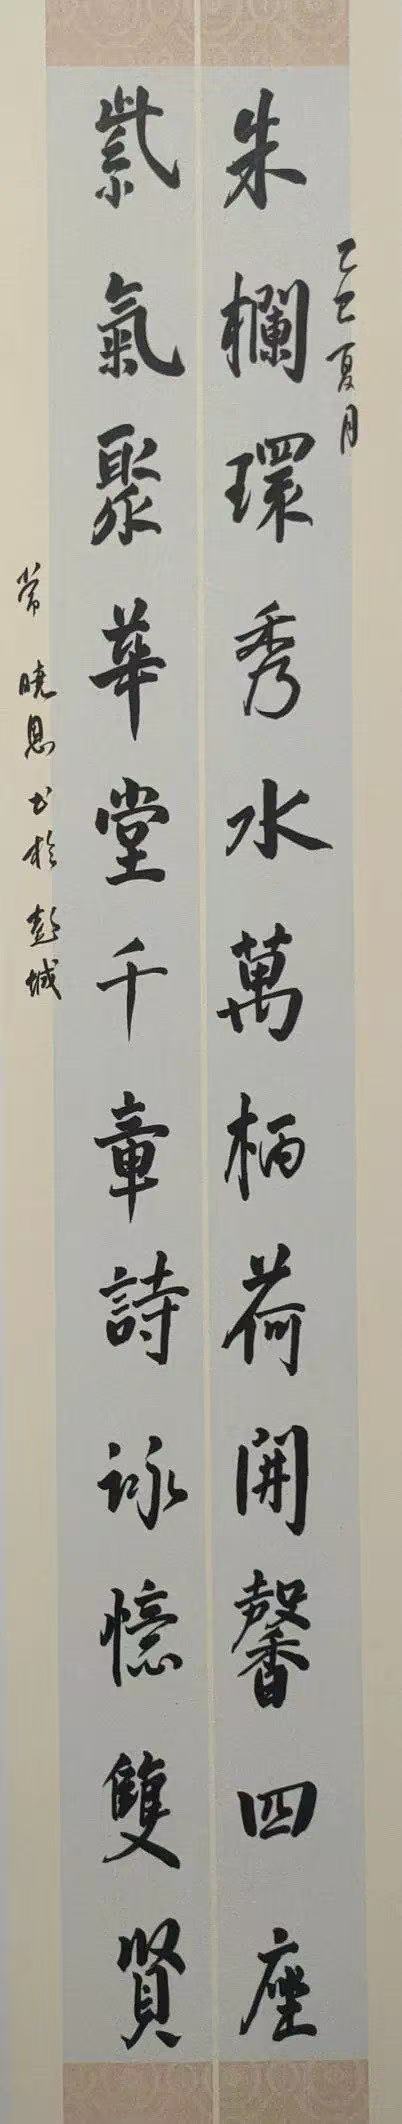 乙巳夏月
朱欄環秀水萬柄荷開馨四座
紫氣聚華堂千章詩詠憶雙賢
常曉恩书於彭城